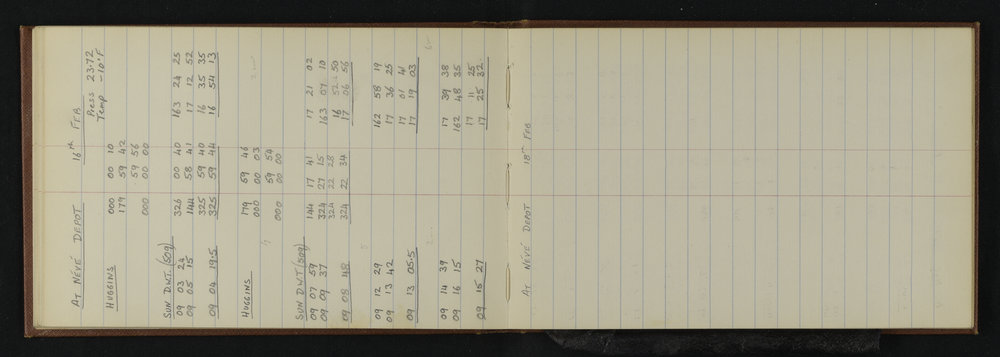 AT NÉVÉ DEPOT 16TH FEB
Press 23.72
Temp −10°F
HUGGINS 000 00 10
179 59 42
59 56
000 00 00
SUN D.W.T. (509)
09 03 24 326 00 40 163 24 25
09 05 15 144 58 41 17 12 52
325 59 40 16 35 35
09 04 19.5 325 59 44 16 54 13
HUGGINS 179 59 46
000 00 03
59 54
000 00 00
SUN D.W.T (509)
09 07 59 144 17 41 17 21 02
09 09 37 324 27 15 163 07 10
324 22 28 16 52 50
09 08 48 324 22 34 17 06 56
09 12 29 162 58 19
09 13 42 17 36 25
17 01 41
09 13 05.5 17 19 03
09 14 39 17 39 38
09 16 15 162 48 35
17 11 25
09 15 27 17 25 32
AT NÉVÉ DEPOT 18TH FEB